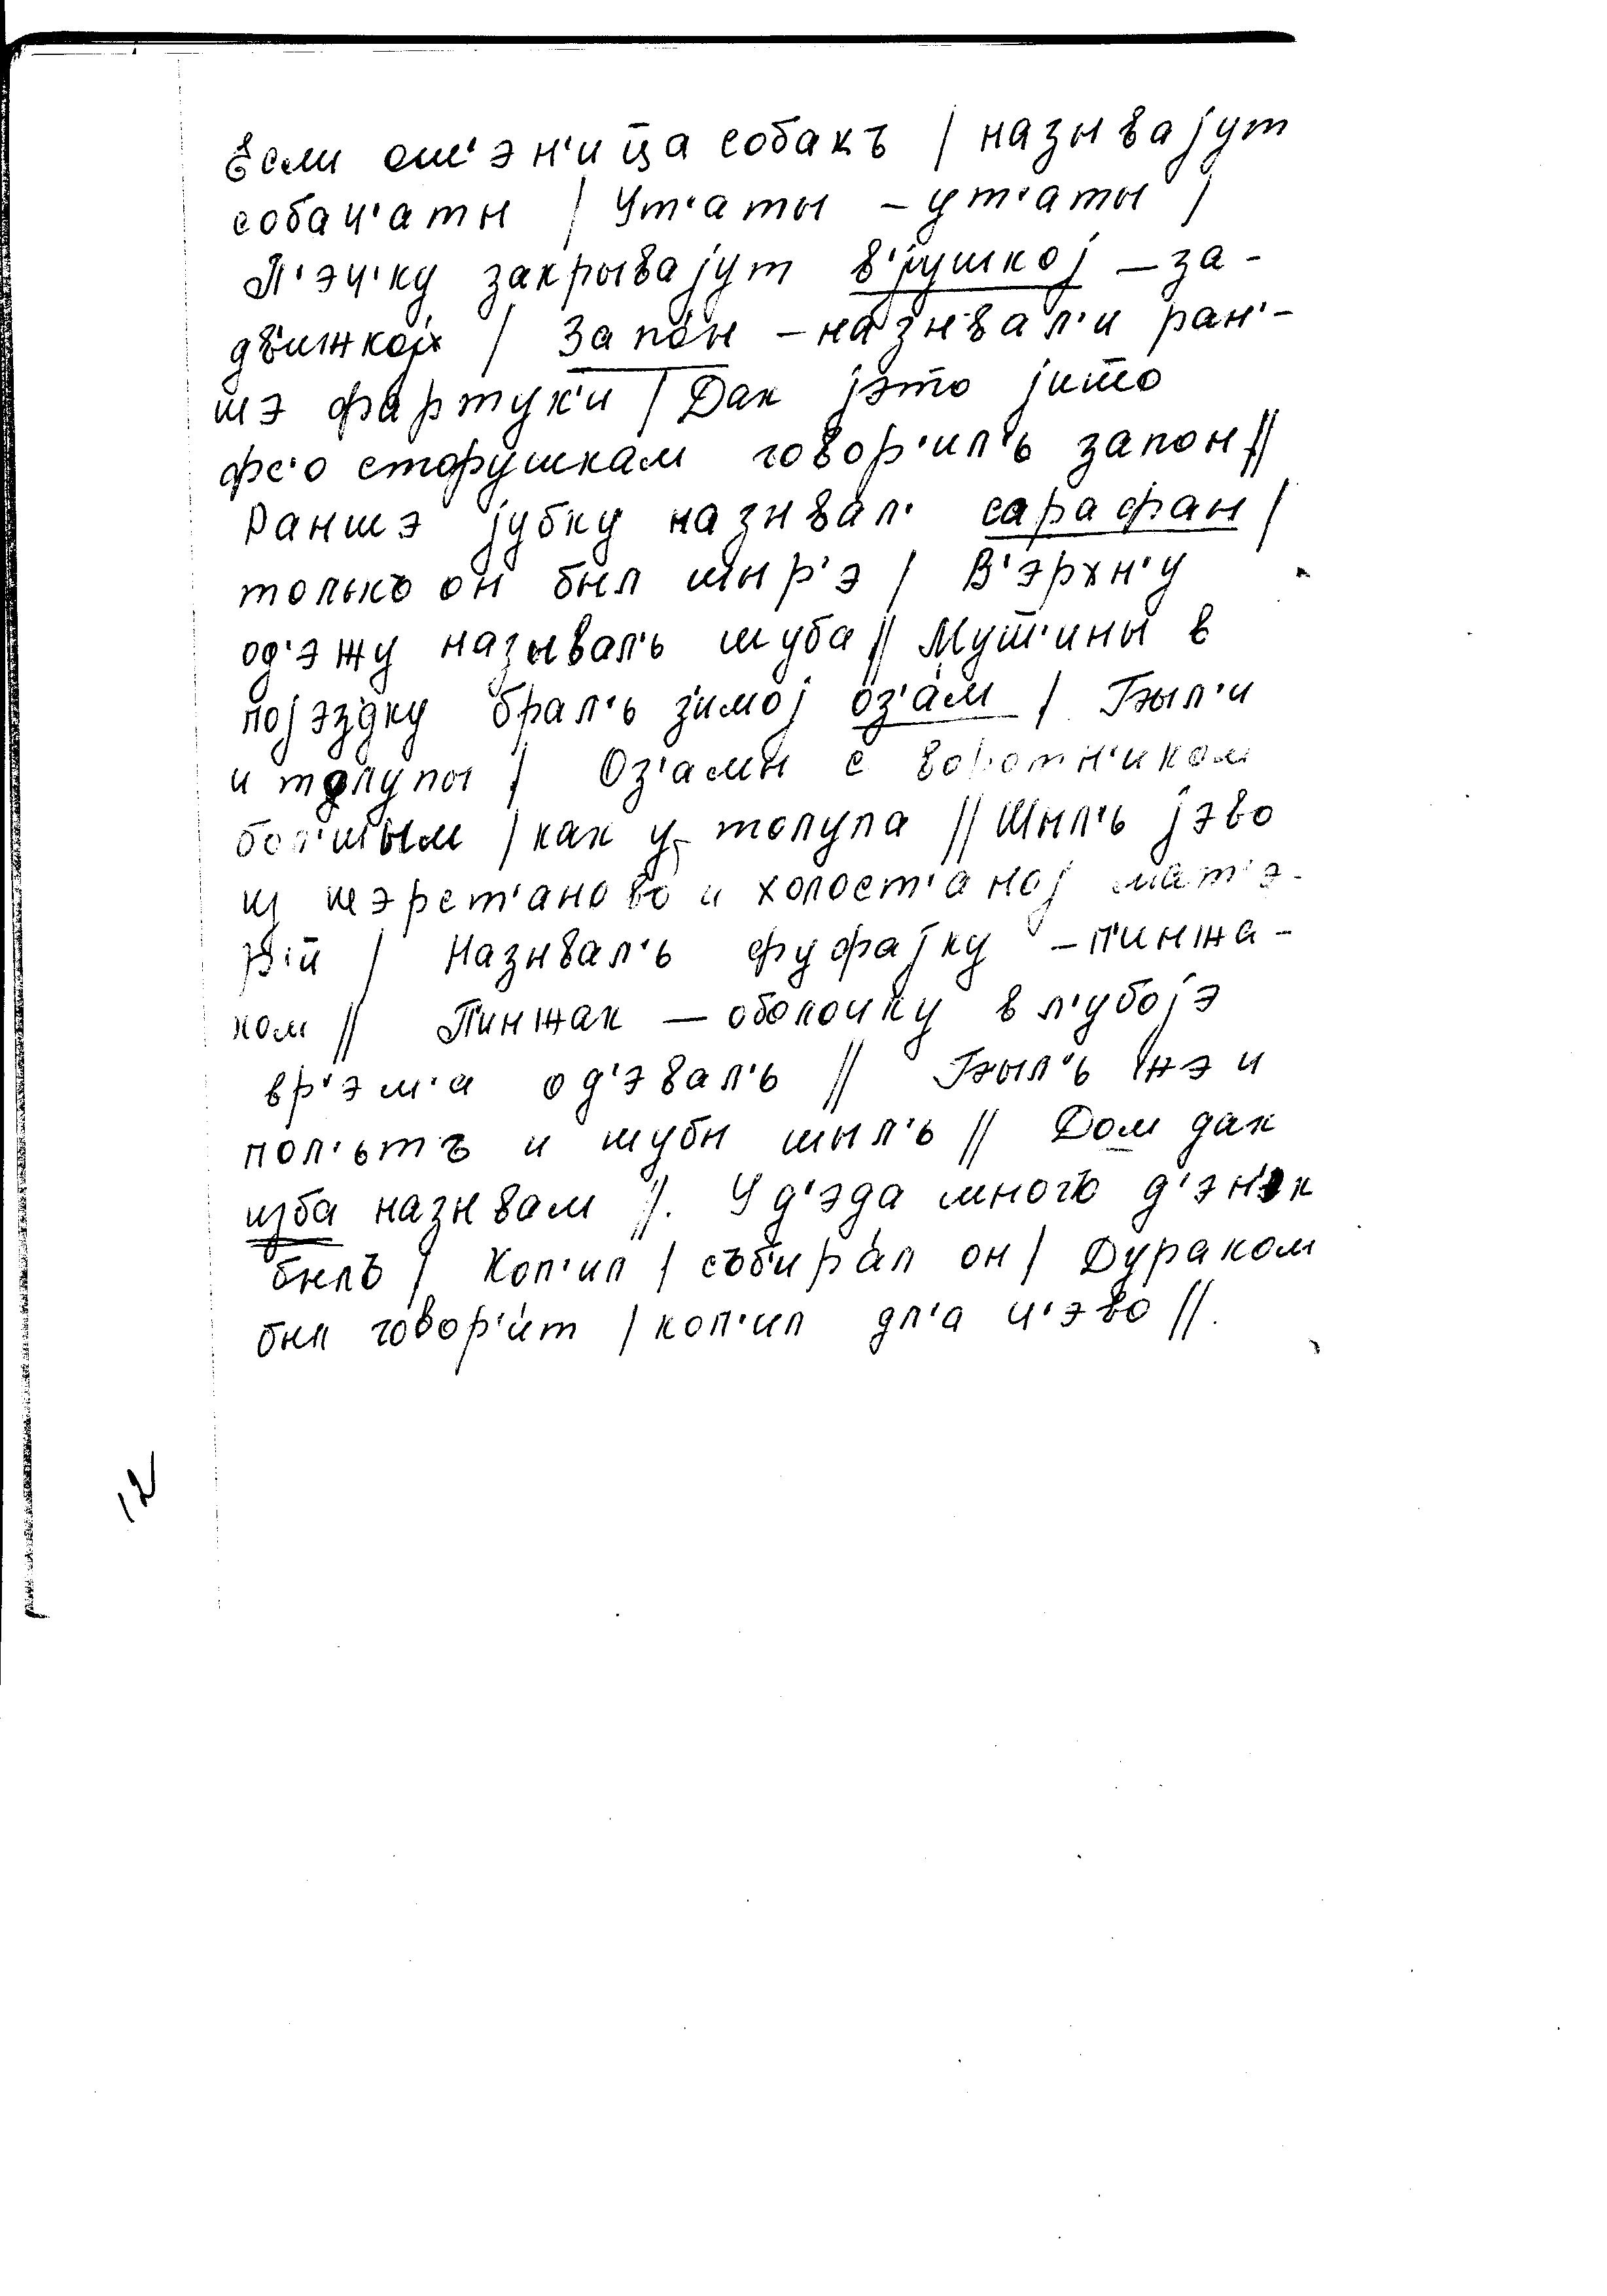 Если ош'эн'ица собакъ / называјут
собач'аты / Ут'аты – ут'аты /
П'эч'ку закрывајут в'јушкој – за-
движкој / Запон – называл'и ран'-
шэ фартук'и / Дак јэто јишо
фс'о старушкам говор'ил'ь запон //
Раншэ јубку называл' сарафан /
только он был шыр'э / В'эрхн'у
од'эжу называл'ь шуба // Мущ'ины в
појэздку брал'ь з'имој оз'ам / Был'и
и толупы / Оз'амы с воротн'иком
бол'шым / как у толупа // Шыл'ь јэво
из шэрст'аново и холост'аној мат'э-
р'ии / Называл'ь фуфајку – п'инжа-
ком // Пинжак – оболочку в л'убојэ
вр'эм'а од'эвал'ь // Был'ь жэ и
пол'ьтъ и шубы шыл'ь // Дом дак
изба называм //. У д'эда много д'энэк
былъ / Коп'ил / събирал он / Дураком
был говор'ит / коп'ил дл'а ч'эво //.
12